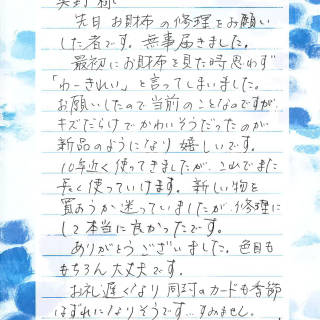 先日 お財布の修理をお願い
した者です。無事届きました。
最初にお財布を見た時思わず
「わーきれい」と言ってしまいました。
お願いしたので当前のことなのですが、
キズだらけでかわいそうだったのが
新品のようになり嬉しいです。
10年近く使ってきましたが、これでまた
長く使っていけます。新しい物を
買おうか迷っていましたが、修理に
して本当に良かったです。
ありがとうございました。色目も
もちろん大丈夫です。
お礼遅くなり同封のカードも季節
はずれになりそうです…すみません。